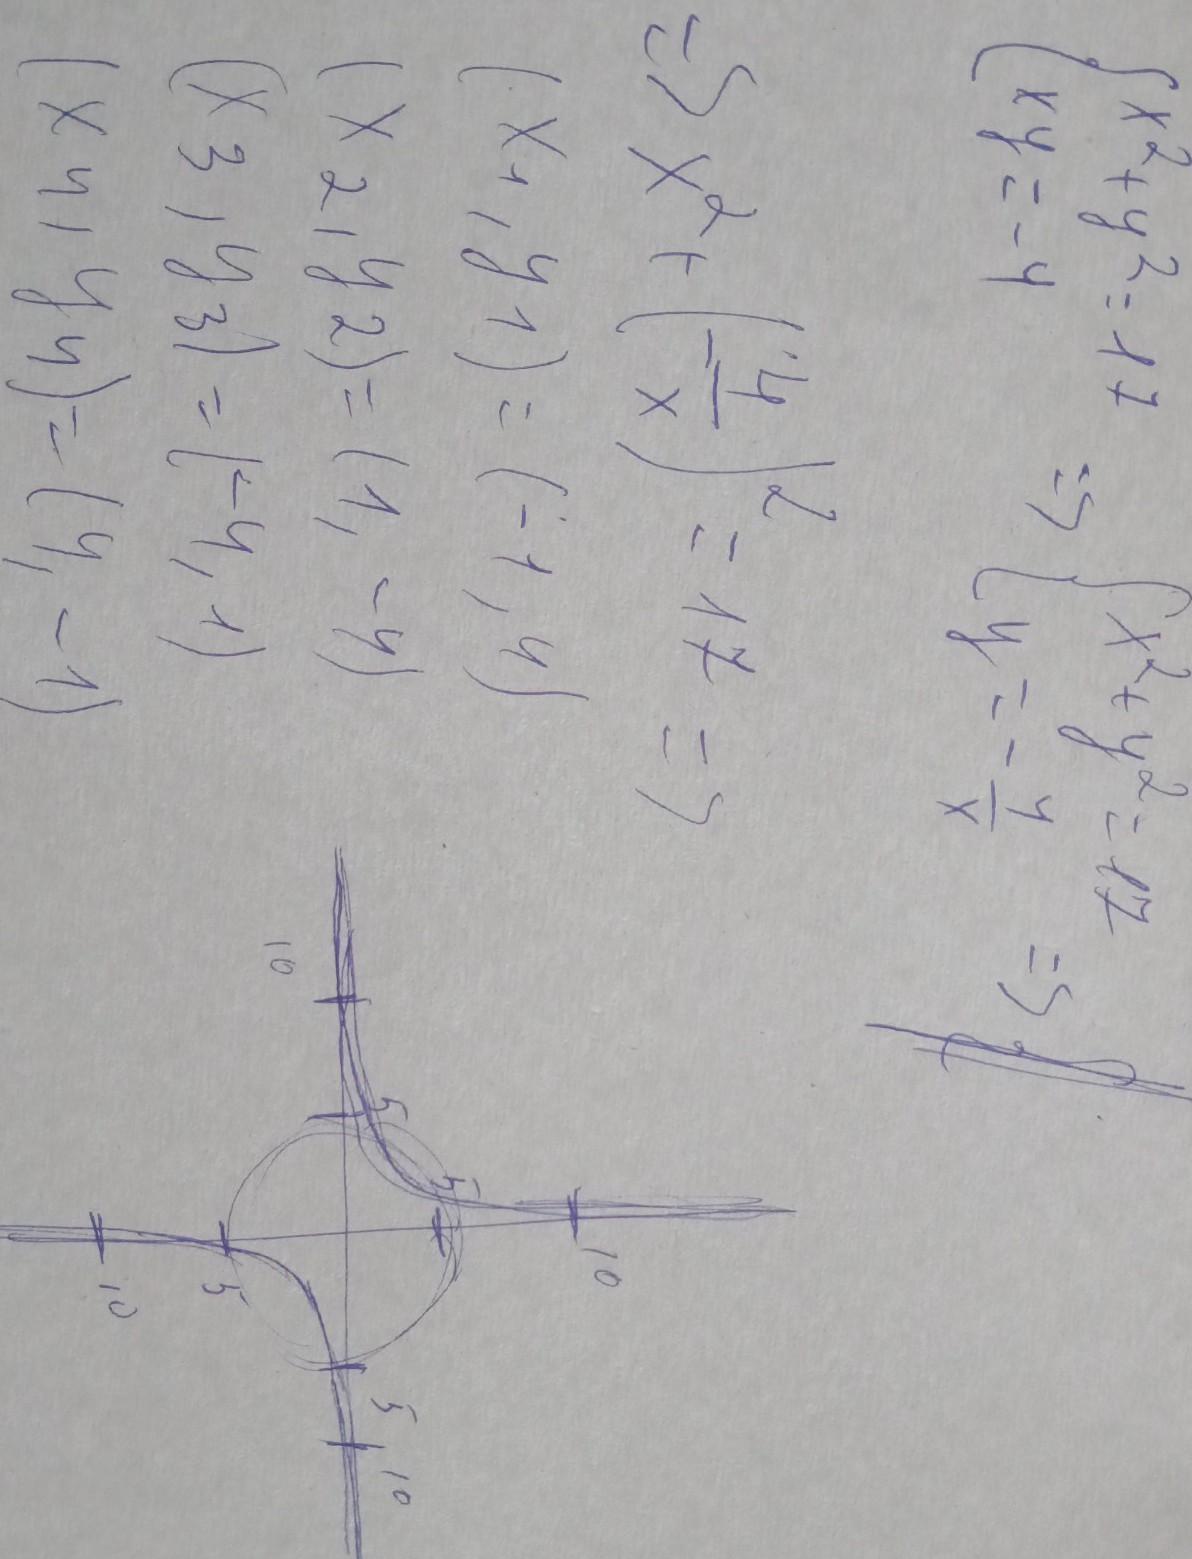 {x²+y²=17 => {x²+y²=17 =>
{xy=-4 {y=-4/x
=> x²+(-4/x)²=17 =>
(x1,y1)=(-1,4)
(x2,y2)=(1,-4)
(x3,y3)=(-4,1)
(x4,y4)=(4,-1)
10
5
10 5 5 10
5
10